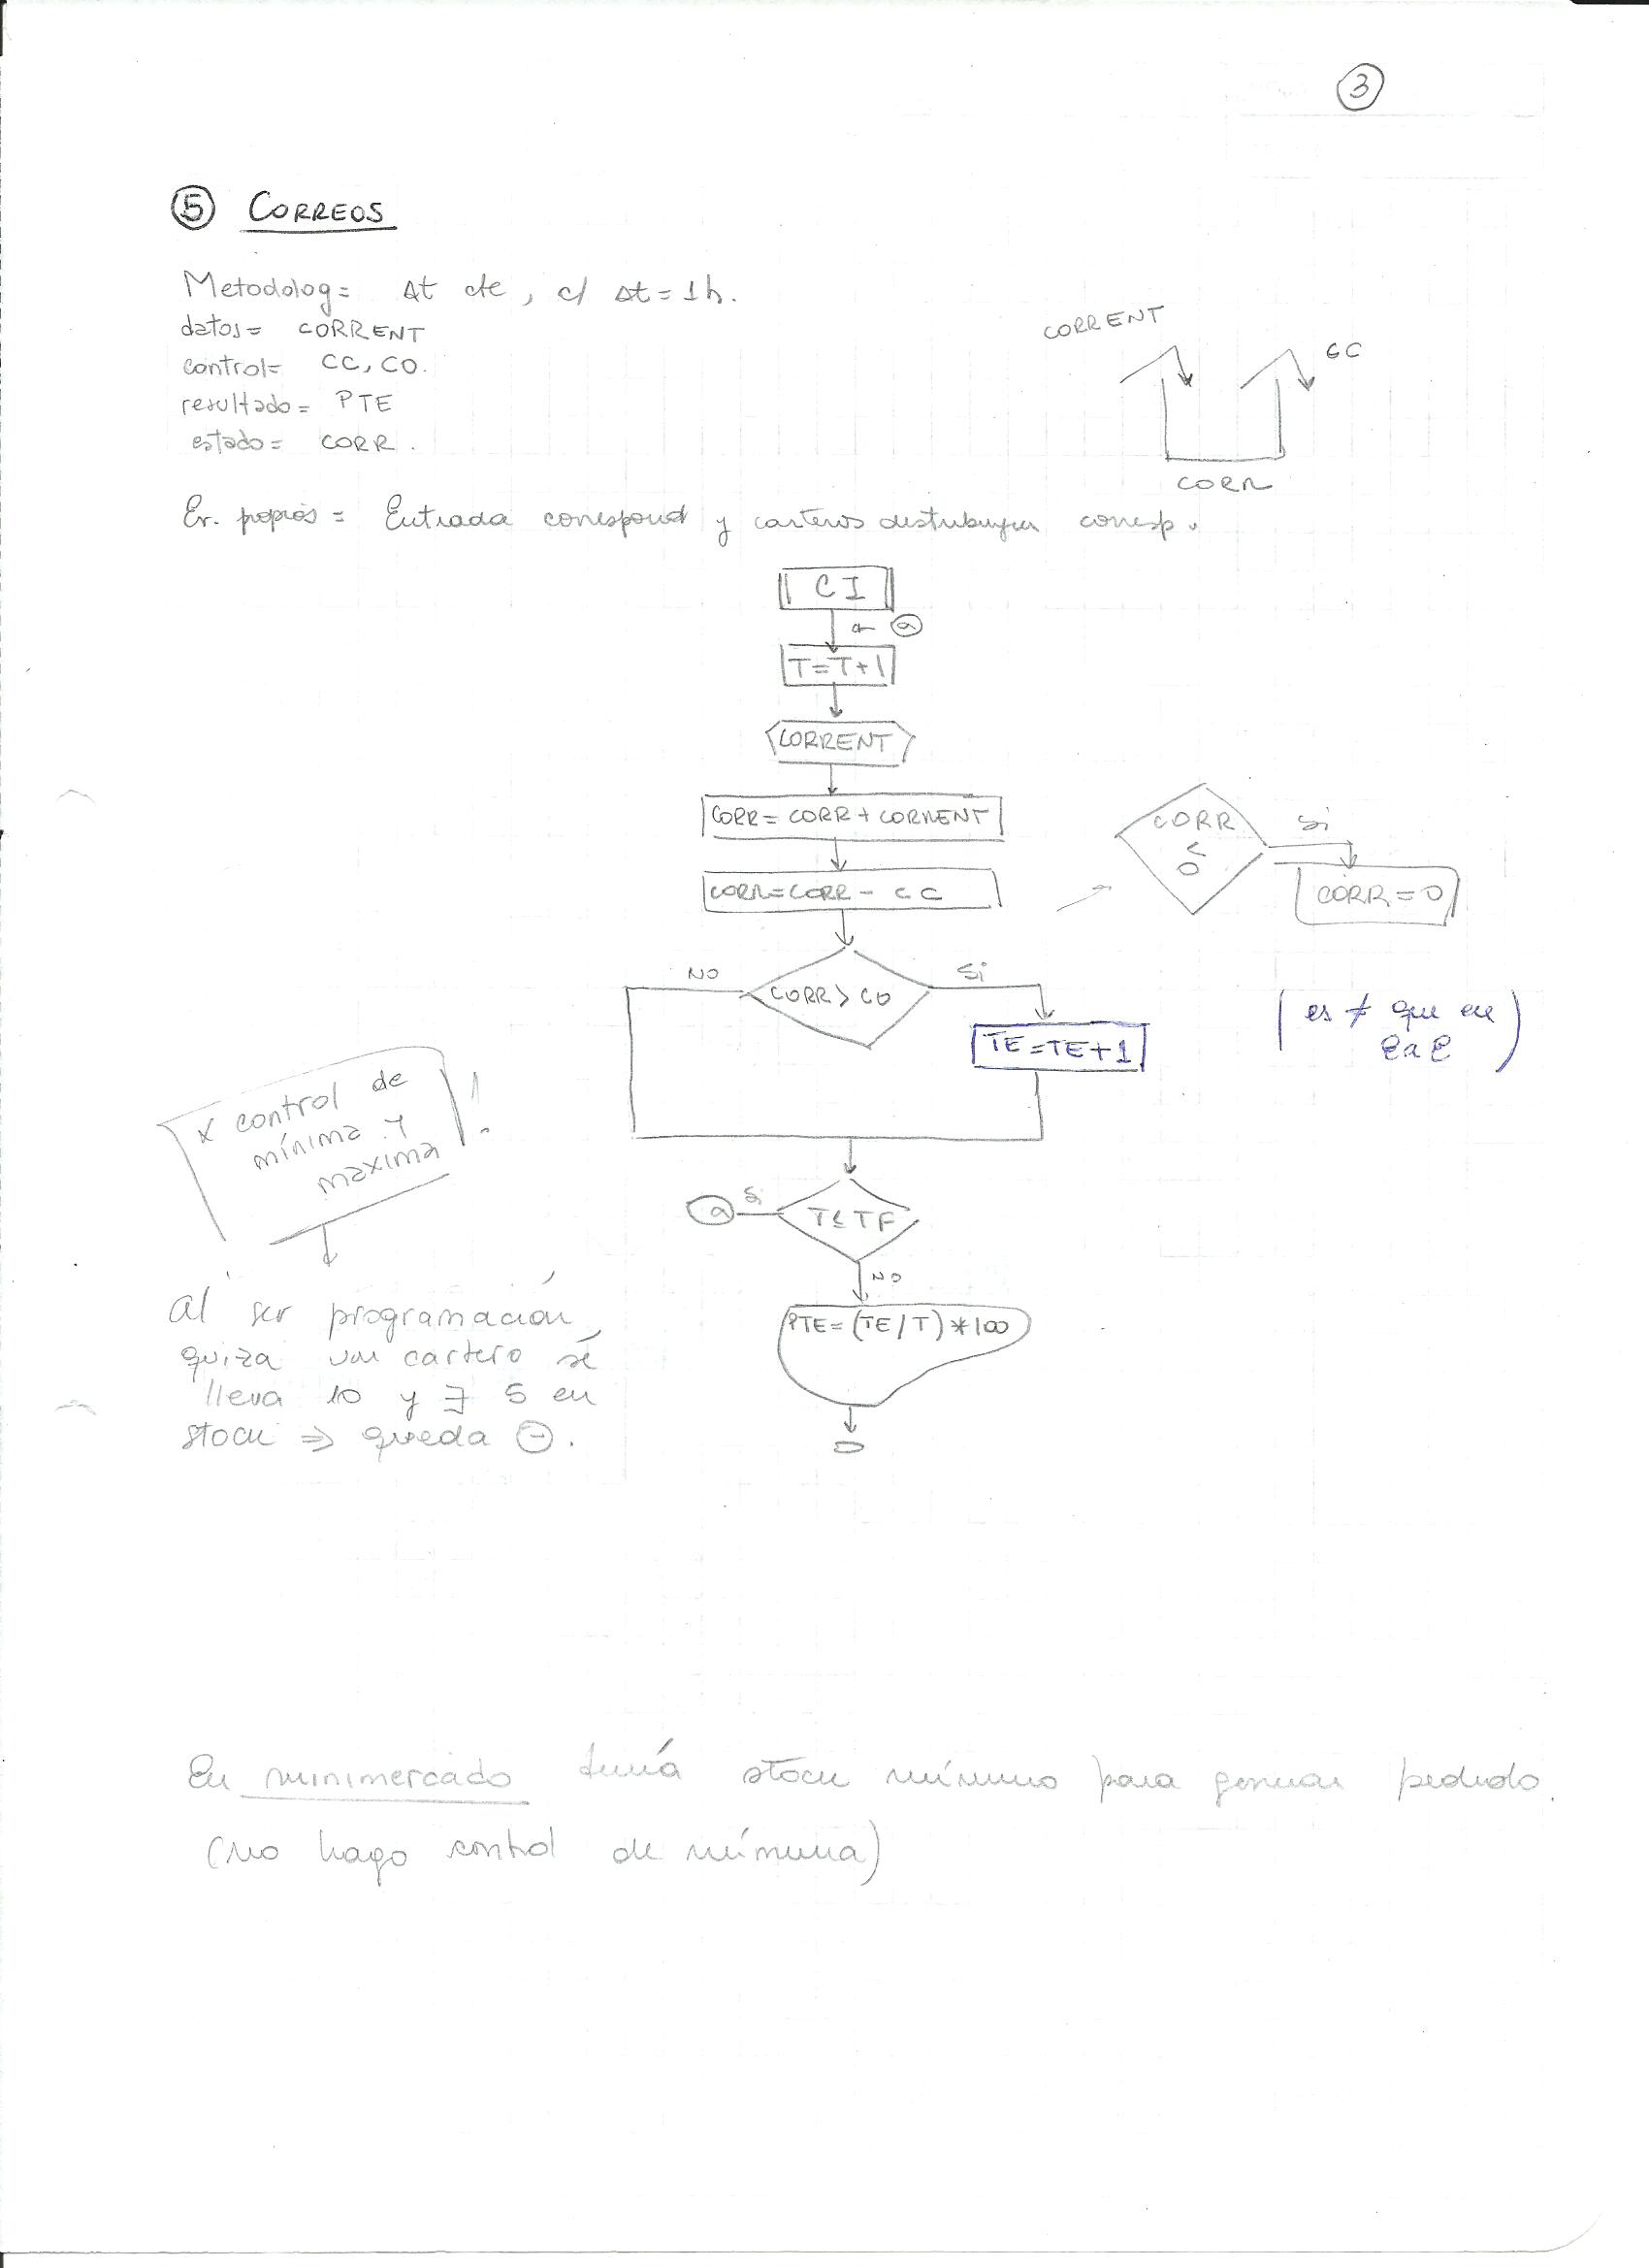 3
5 CORREOS
Metodolog= Δt cte, c/ Δt=1h.
datos= CORRENT
control= CC, CO.
resultado= PTE
estado= CORR.
CORRENT
CC
CORR
Ev. propios = Entrada correspond y carteros distribuyen corresp.
CI
a
T=T+1
CORRENT
CORR= CORR + CORRENT
CORR=CORR - CC
CORR
≤
0
si
CORR=0
NO
CORR > CO
Si
TE=TE+1
(es ≠ que en
EaE)
x control de
mínima y
maxima
!
a
Si
T≤TF
NO
PTE=(TE/T)*100
al ser programación,
quiza un cartero se
lleva 10 y ∃ 5 en
stock ⇒ queda ⊖.
En minimercado tenía stock mínimo para generar pedido.
(no hago control de mínima)